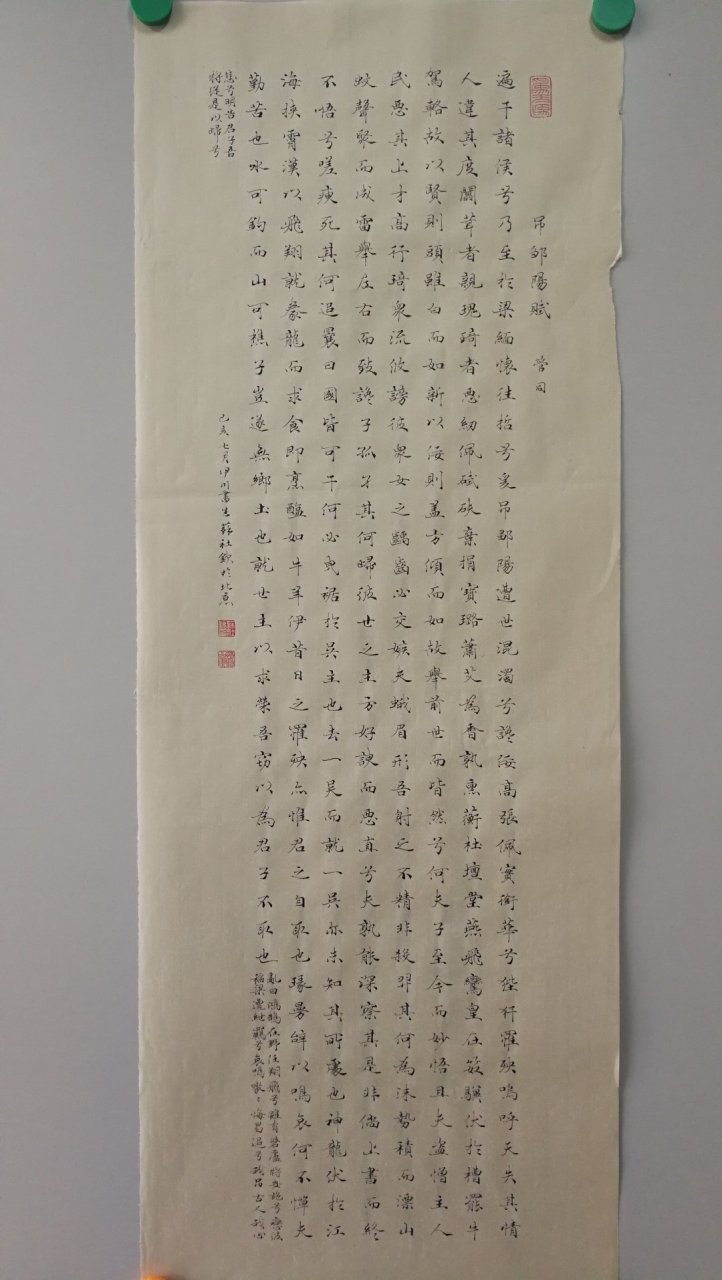 吊鄒陽賦 管同
遍干諸侯兮乃至於梁緬懷往哲兮爰吊鄒陽遭世混濁兮讒佞高張佩實銜華兮狴犴罹殃嗚呼天失其情
人違其度闒茸者親瑰琦者惡紉佩碔砆棄捐寶璐蕭艾為香孰熏蘅杜壇堂燕飛鸞皇在笯騏伏於槽罷牛
駕輅故以賢則頭雖白而如新以佞則蓋方傾而如故舉前世而皆然兮何夫子至今而妙悟且夫盜憎主人
民惡其上才高行琦衆流攸謗彼衆女之齲齒必交嫉夫蛾眉形吾射之不精非殺羿其何為沫勢積而漂山
蚊聲聚而成雷舉左右而致讒子孤身其何歸彼世之主方好諛而惡直兮夫孰能深察其是非儻上書而終
不悟兮嗟瘐死其何追曩日國皆可干何必曳裾於吳主也去一吳而就一吳亦未知其所處也神龍伏於江
海挾霄漢以飛翔就豢龍而求食即烹醢如牛羊伊昔日之罹殃亦惟君之自取也曼辭以鳴哀何不憚夫
勤苦也水可鈎而山可樵子豈遂無鄉土也就世主以求榮吾竊以為君子不取也
亂曰鴻鵠在野任翔飛兮雖有碆盧將安施兮戀彼
稻粱遭紲羈兮哀鳴嗷々悔曷追兮我吊古人我心
悲兮明告君子吾
將從是以歸兮
己亥七月伊川書生蘇社欽於北京